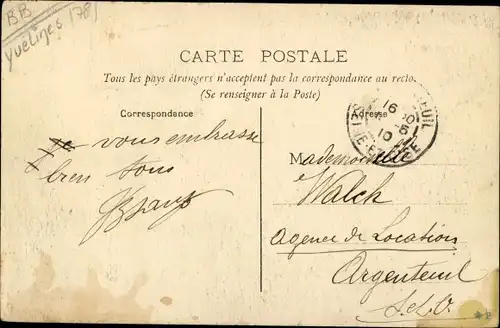 BB
Yvelines (78)
CARTE POSTALE
Tous les pays étrangers n'acceptent pas la correspondance au recto.
(Se renseigner à la Poste)
Correspondance
Adresse
16
10
Je vous embrasse
bien tous
Mademoiselle
Walck
Agence de Location
Argenteuil
S.&O.